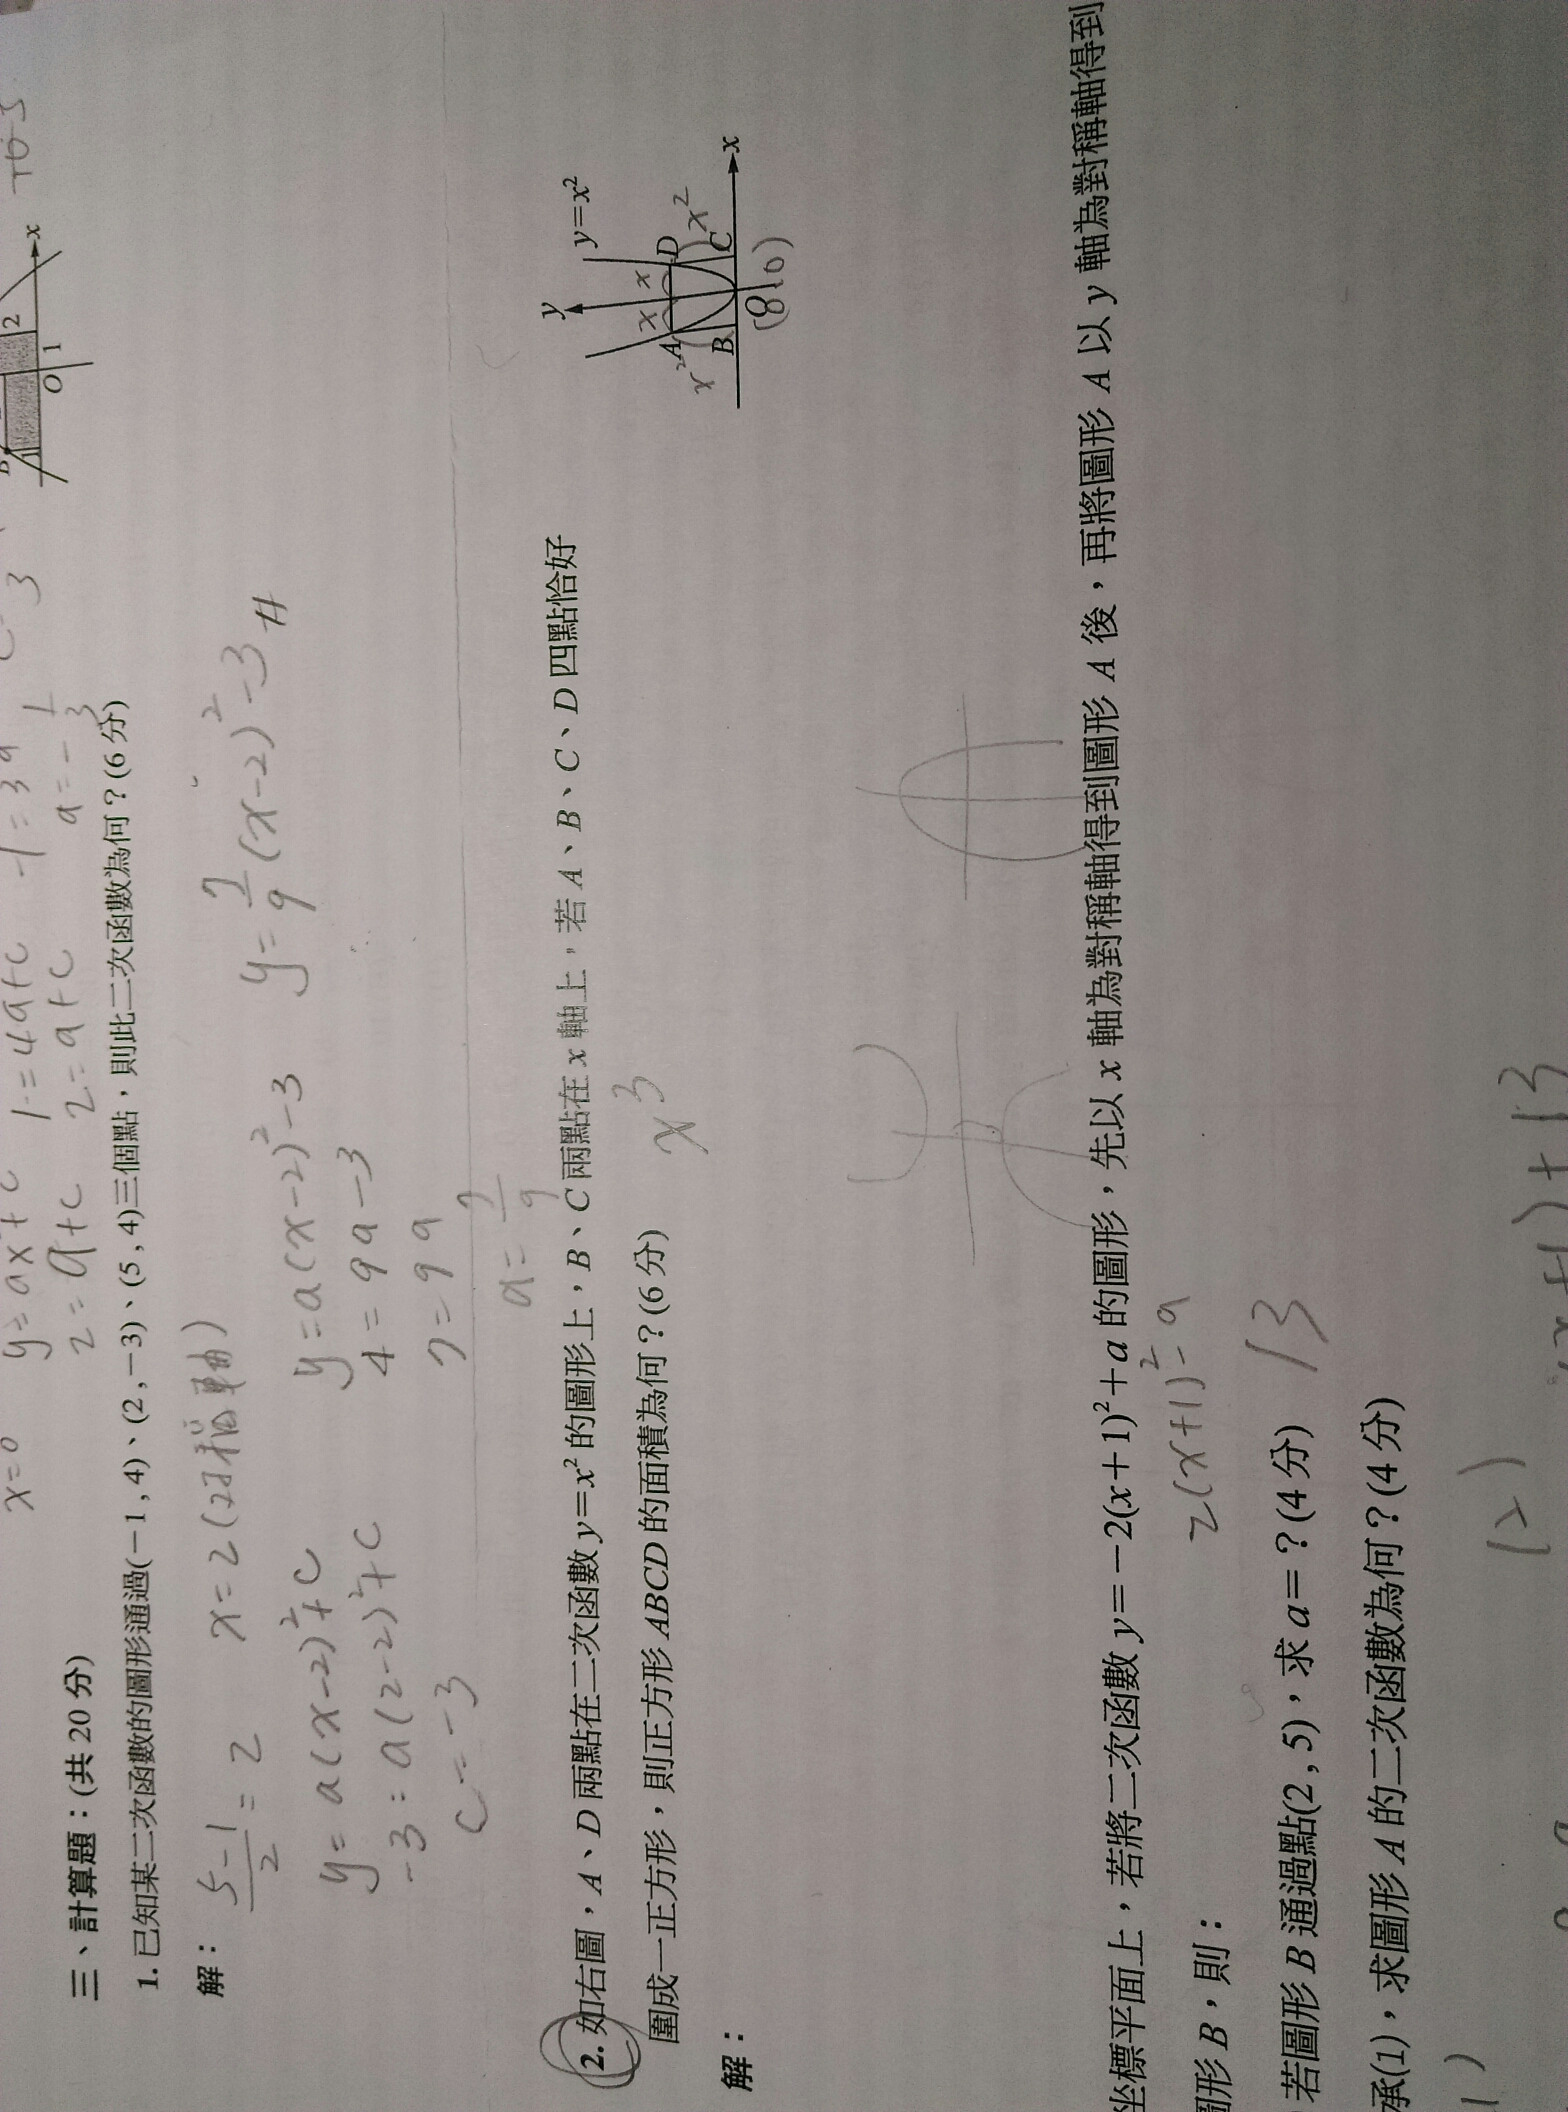 x=0
y=ax²+c
1=4a+c
-1=3a
2=a+c
2=a+c
a=-1/3
O 1
2
x
三、計算題：(共 20 分)
1. 已知某二次函數的圖形通過(－1 , 4)、(2 ,－3)、(5 , 4)三個點，則此二次函數為何？(6 分)
解：
5-1/2=2
x=2(對稱軸)
y=a(x-2)²+c
y=a(x-2)²-3
y=7/9(x-2)²-3 #
-3=a(2-2)²+c
4=9a-3
c=-3
7=9a
a=7/9
2. 如右圖，A、D 兩點在二次函數 y＝x² 的圖形上，B、C 兩點在 x 軸上，若 A、B、C、D 四點恰好
圍成一正方形，則正方形 ABCD 的面積為何？(6 分)
x³
解：
y
y=x²
x x
x² A D x²
B C
x
O
(0,0)
坐標平面上，若將二次函數 y＝－2(x＋1)²＋a 的圖形，先以 x 軸為對稱軸得到圖形 A 後，再將圖形 A 以 y 軸為對稱軸得到
圖形 B，則：
2(x+1)²-a
若圖形 B 通過點(2 , 5)，求 a＝？(4 分)
13
承(1)，求圖形 A 的二次函數為何？(4 分)
(2)